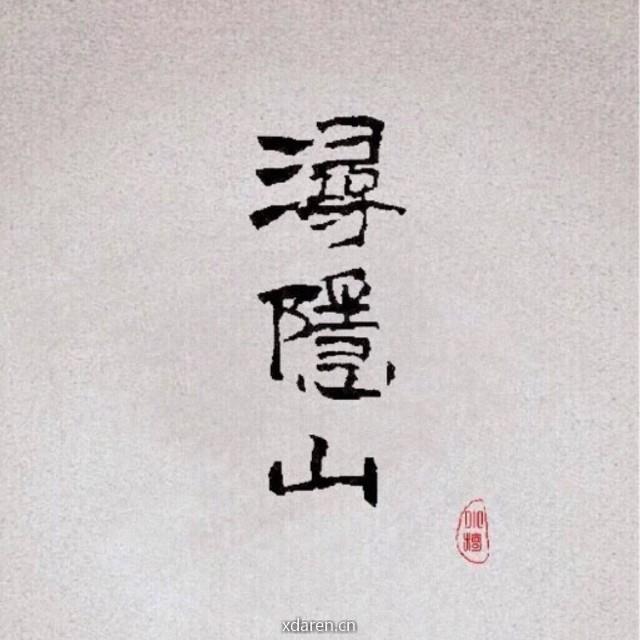 潯隱山
xdaren.cn